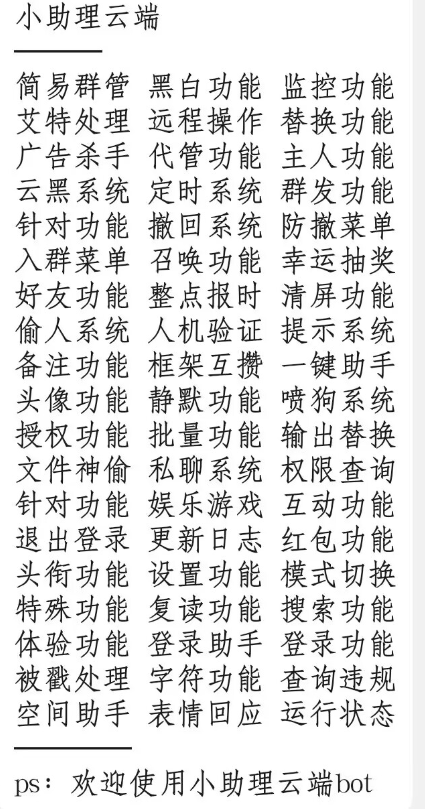 小助理云端
简易群管 黑白功能 监控功能
艾特处理 远程操作 替换功能
广告杀手 代管功能 主人功能
云黑系统 定时系统 群发功能
针对功能 撤回系统 防撤菜单
入群菜单 召唤功能 幸运抽奖
好友功能 整点报时 清屏功能
偷人系统 人机验证 提示系统
备注功能 框架互攒 一键助手
头像功能 静默功能 喷狗系统
授权功能 批量功能 输出替换
文件神偷 私聊系统 权限查询
针对功能 娱乐游戏 互动功能
退出登录 更新日志 红包功能
头衔功能 设置功能 模式切换
特殊功能 复读功能 搜索功能
体验功能 登录助手 登录功能
被戳处理 字符功能 查询违规
空间助手 表情回应 运行状态
ps：欢迎使用小助理云端bot